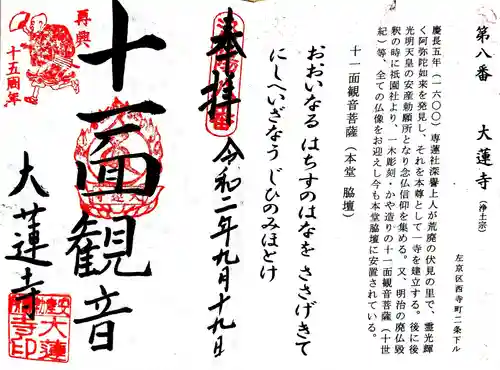 第八番　大蓮寺（浄土宗）
左京区西寺町二条下ル
慶長五年（一六〇〇）専蓮社深誉上人が荒廃の伏見の里で、霊光輝
く阿弥陀如来を発見し、それを本尊として一寺を建立する。後に後
光明天皇の安産勅願所となり念仏信仰を集める。又、明治の廃仏毀
釈の時に祇園社より、一木彫刻・かや造りの十一面観音菩薩（十世
紀）等、全ての仏像をお迎えし今も本堂脇壇に安置されている。
十一面観音菩薩（本堂 脇壇）
おおいなる はちすのはなを ささげきて
にしへいざなう じひのみほとけ
奉拝
令和二年九月十九日
十一面観音
大蓮寺
再興
十五周年
安産勅願所
大蓮寺印